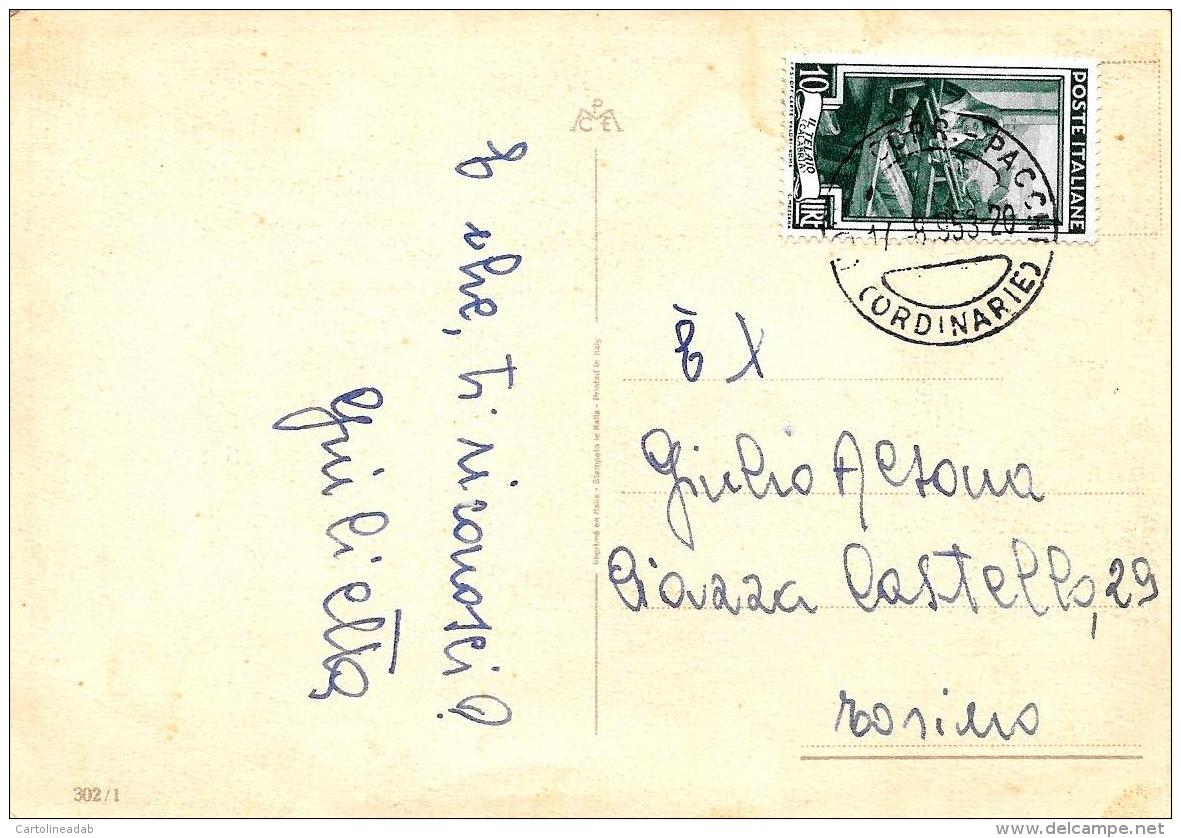 E che, ti riconosci?
Giulietta
Imprimé en Italie - Stampato in Italia - Printed in Italy
POSTE ITALIANE
10
LIRE
IL TELAIO
(CALABRIA)
FERR. - PACCHI
17 -8 953-20
(ORDINARIE)
Giulio Altona
Piazza Castello, 29
Torino
302/1
Cartolineadab
delcampe.net